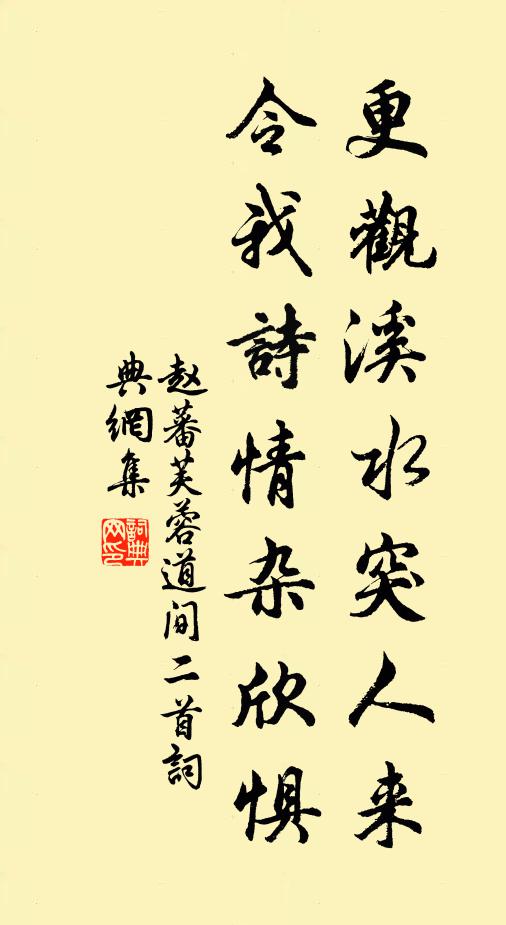 更觀溪水突人来
令我詩情杂欣惧
赵蕃芙蓉道间二首詞
典網集
詞典網印